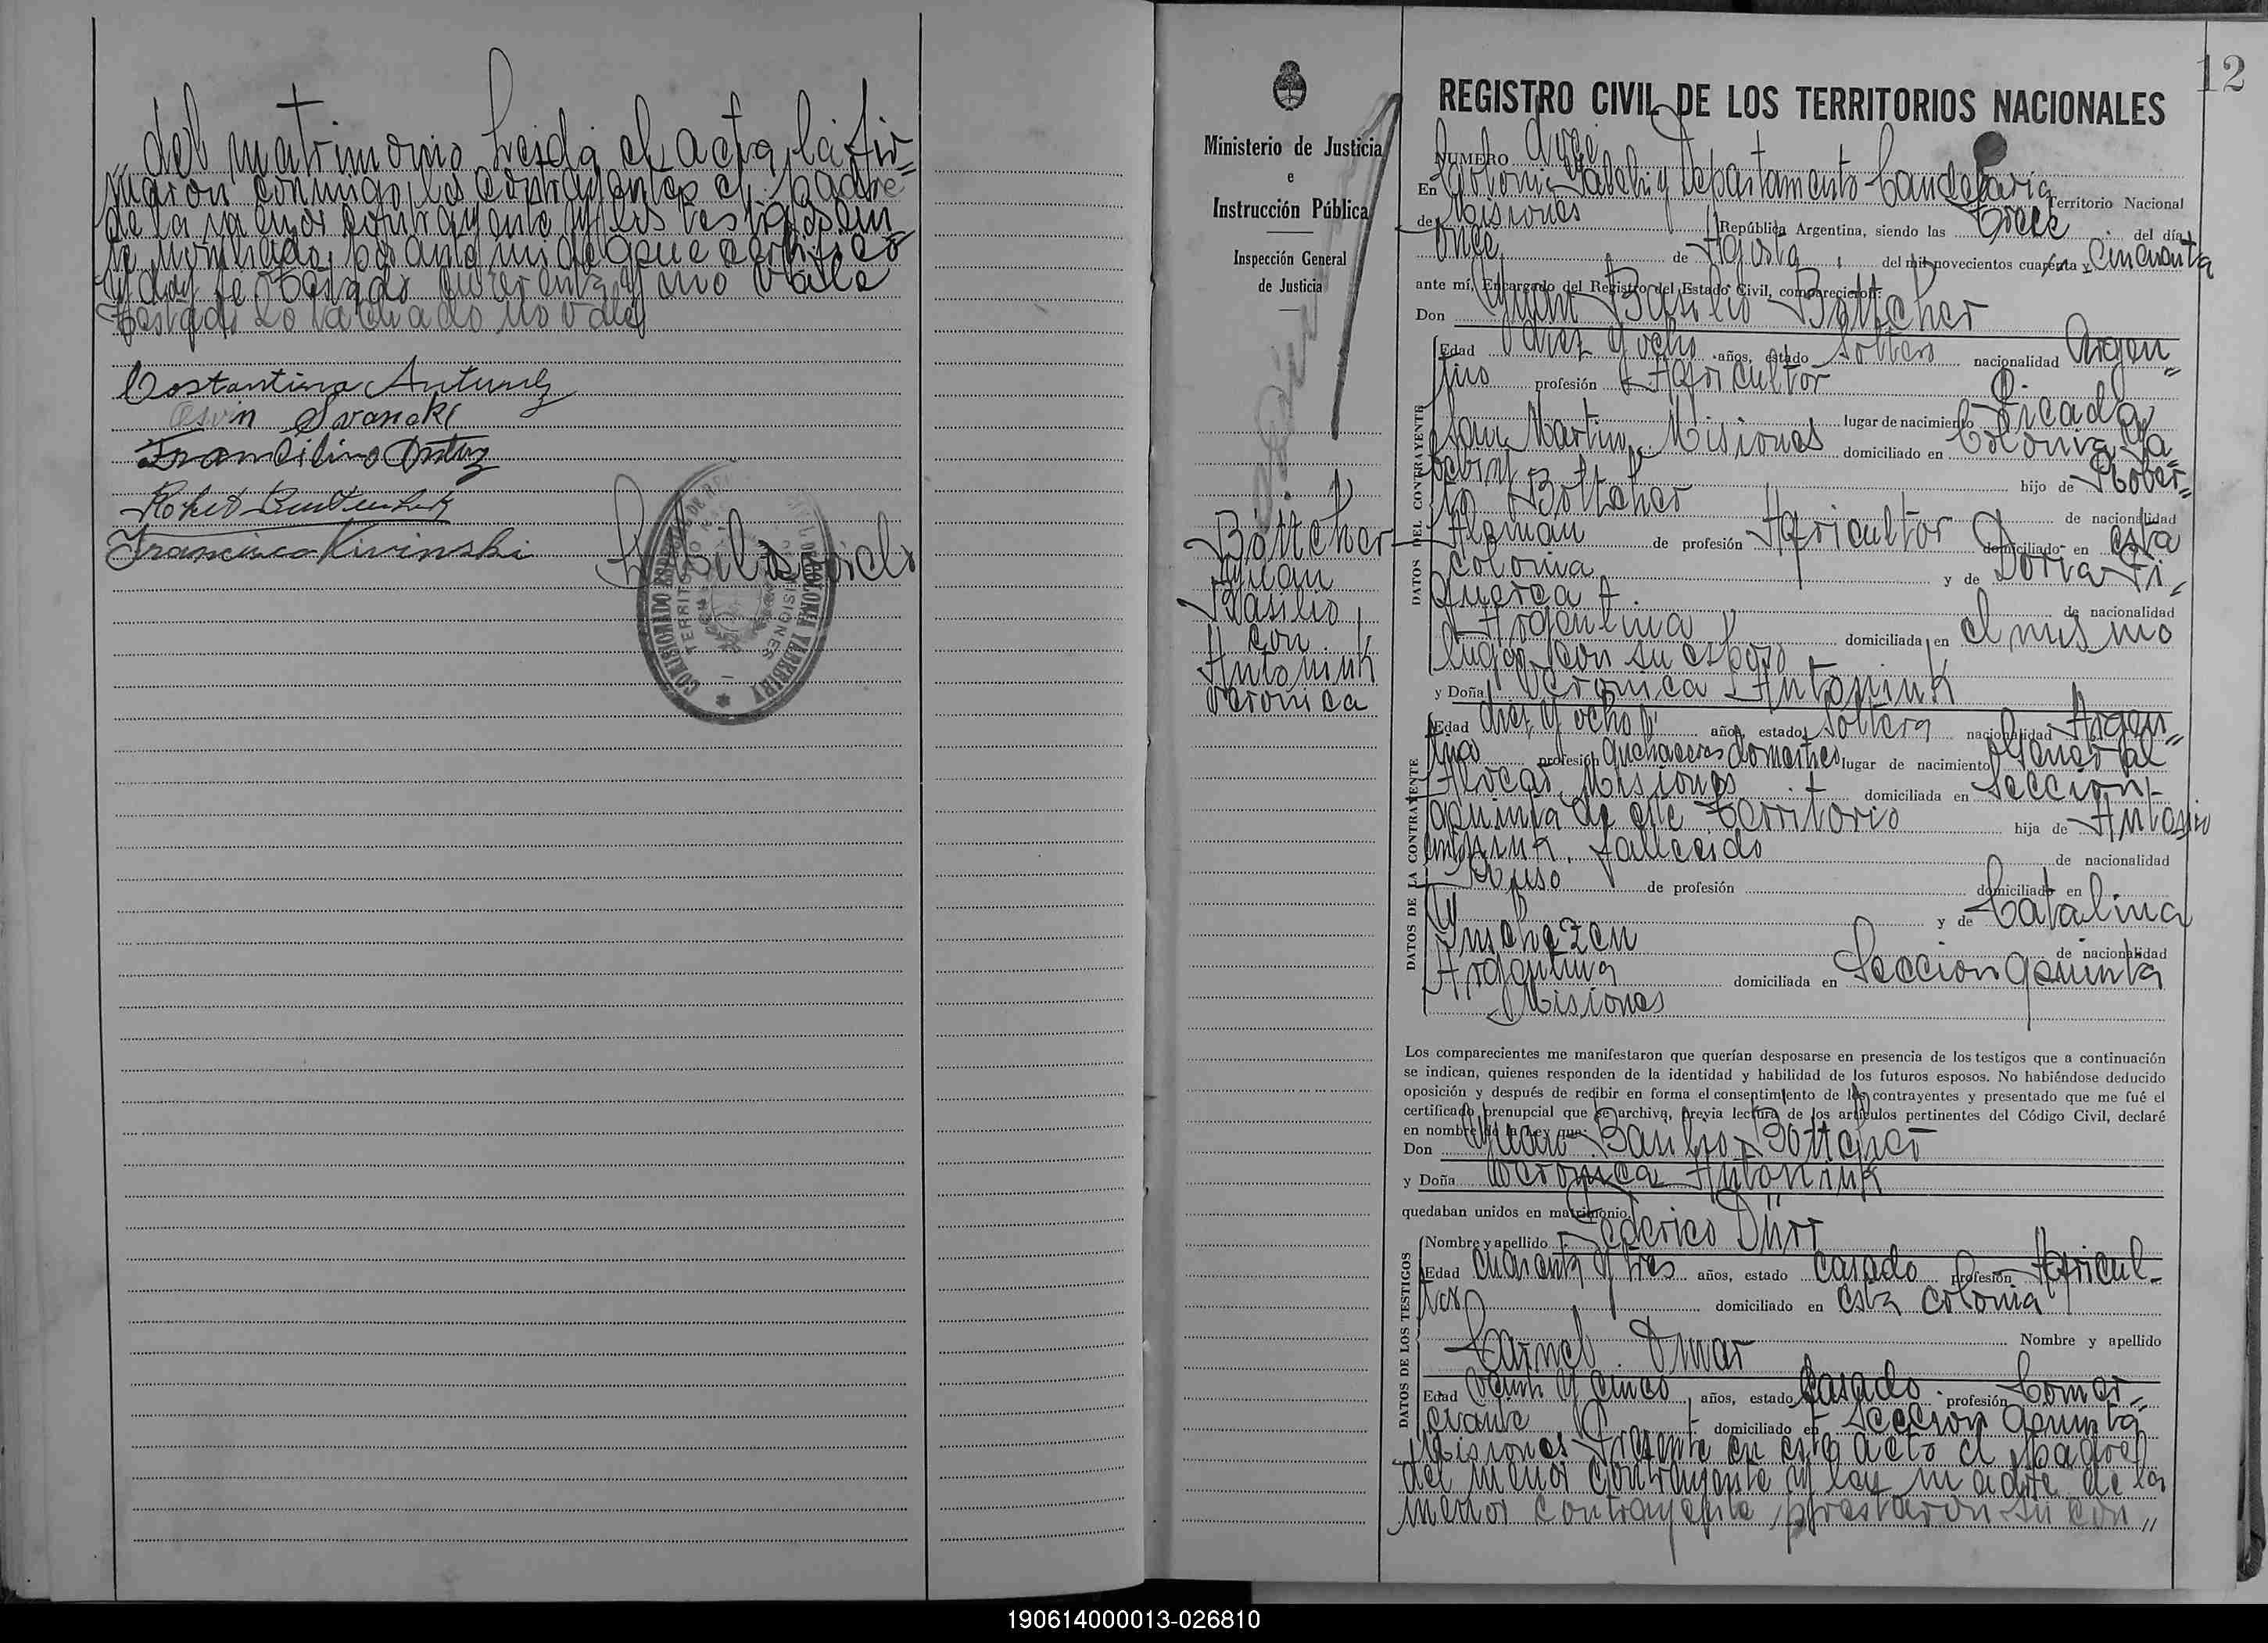 del matrimonio. Leida el acta, la fir=
maron conmigo, los contrayentes el padre
de la menor contrayente y los testigos
por ante mi de que certifico
y doy fe Testado cuarenta y uno Vale
Testado Lo tachado no vale
Costantina Antunez
Svaneki
Francilino Antuz
Francisco Kivinski
COMISIONADO
TERRITORIO
MISIONES
COLONIA YABEBIRY
12
Ministerio de Justicia
e
Instrucción Pública
Inspección General
de Justicia
Böttcher
Juan
Basilio
con
Antonink
Veronica
REGISTRO CIVIL DE LOS TERRITORIOS NACIONALES
NUMERO Doce
En Colonia Yabebiry Departamento Candelaria Territorio Nacional
de Misiones República Argentina, siendo las trece del día
once de Agosto del mil novecientos cuarenta y cincuenta
ante mí, Encargado del Registro del Estado Civil, comparecieron:
Don Juan Basilio Bottcher
DATOS DEL CONTRAYENTE
Edad diez y ocho años, estado soltero nacionalidad Argen=
tino profesión Agricultor
lugar de nacimiento Picada
San Martin, Misiones domiciliado en Colonia Ya=
bebiry hijo de Rober=
to Bottcher de nacionalidad
Aleman de profesión Agricultor domiciliado en esta
colonia y de
de nacionalidad
Argentina domiciliada en el mismo
lugar con su esposo
y Doña Veronica Antonink
DATOS DE LA CONTRAYENTE
Edad diez y ocho años, estado soltera nacionalidad Argen=
tina profesión quehaceres domesticos lugar de nacimiento General
Alvear Misiones domiciliada en Seccion
quinta de este territorio hija de Antonio
Antonink fallecido de nacionalidad
Ruso de profesión domiciliado en
y de Catalina
de nacionalidad
Argentina domiciliada en Seccion quinta
Misiones
Los comparecientes me manifestaron que querían desposarse en presencia de los testigos que a continuación
se indican, quienes responden de la identidad y habilidad de los futuros esposos. No habiéndose deducido
oposición y después de recibir en forma el consentimiento de los contrayentes y presentado que me fué el
certificado prenupcial que se archiva, previa lectura de los artículos pertinentes del Código Civil, declaré
en nombre de la Ley que:
Don Juan Basilio Bottcher
y Doña Veronica Antonink
quedaban unidos en matrimonio.
DATOS DE LOS TESTIGOS
Nombre y apellido Federico Dürr
Edad cuarenta y tres años, estado casado profesión Agricul-
tor domiciliado en esta colonia
Nombre y apellido
Edad veinti y cinco años, estado casado profesión Comer=
ciante domiciliado en Seccion quinta
Misiones Presente en este acto el padre
del menor contrayente y la madre de la
menor contrayente, prestaron su con"
190614000013-026810